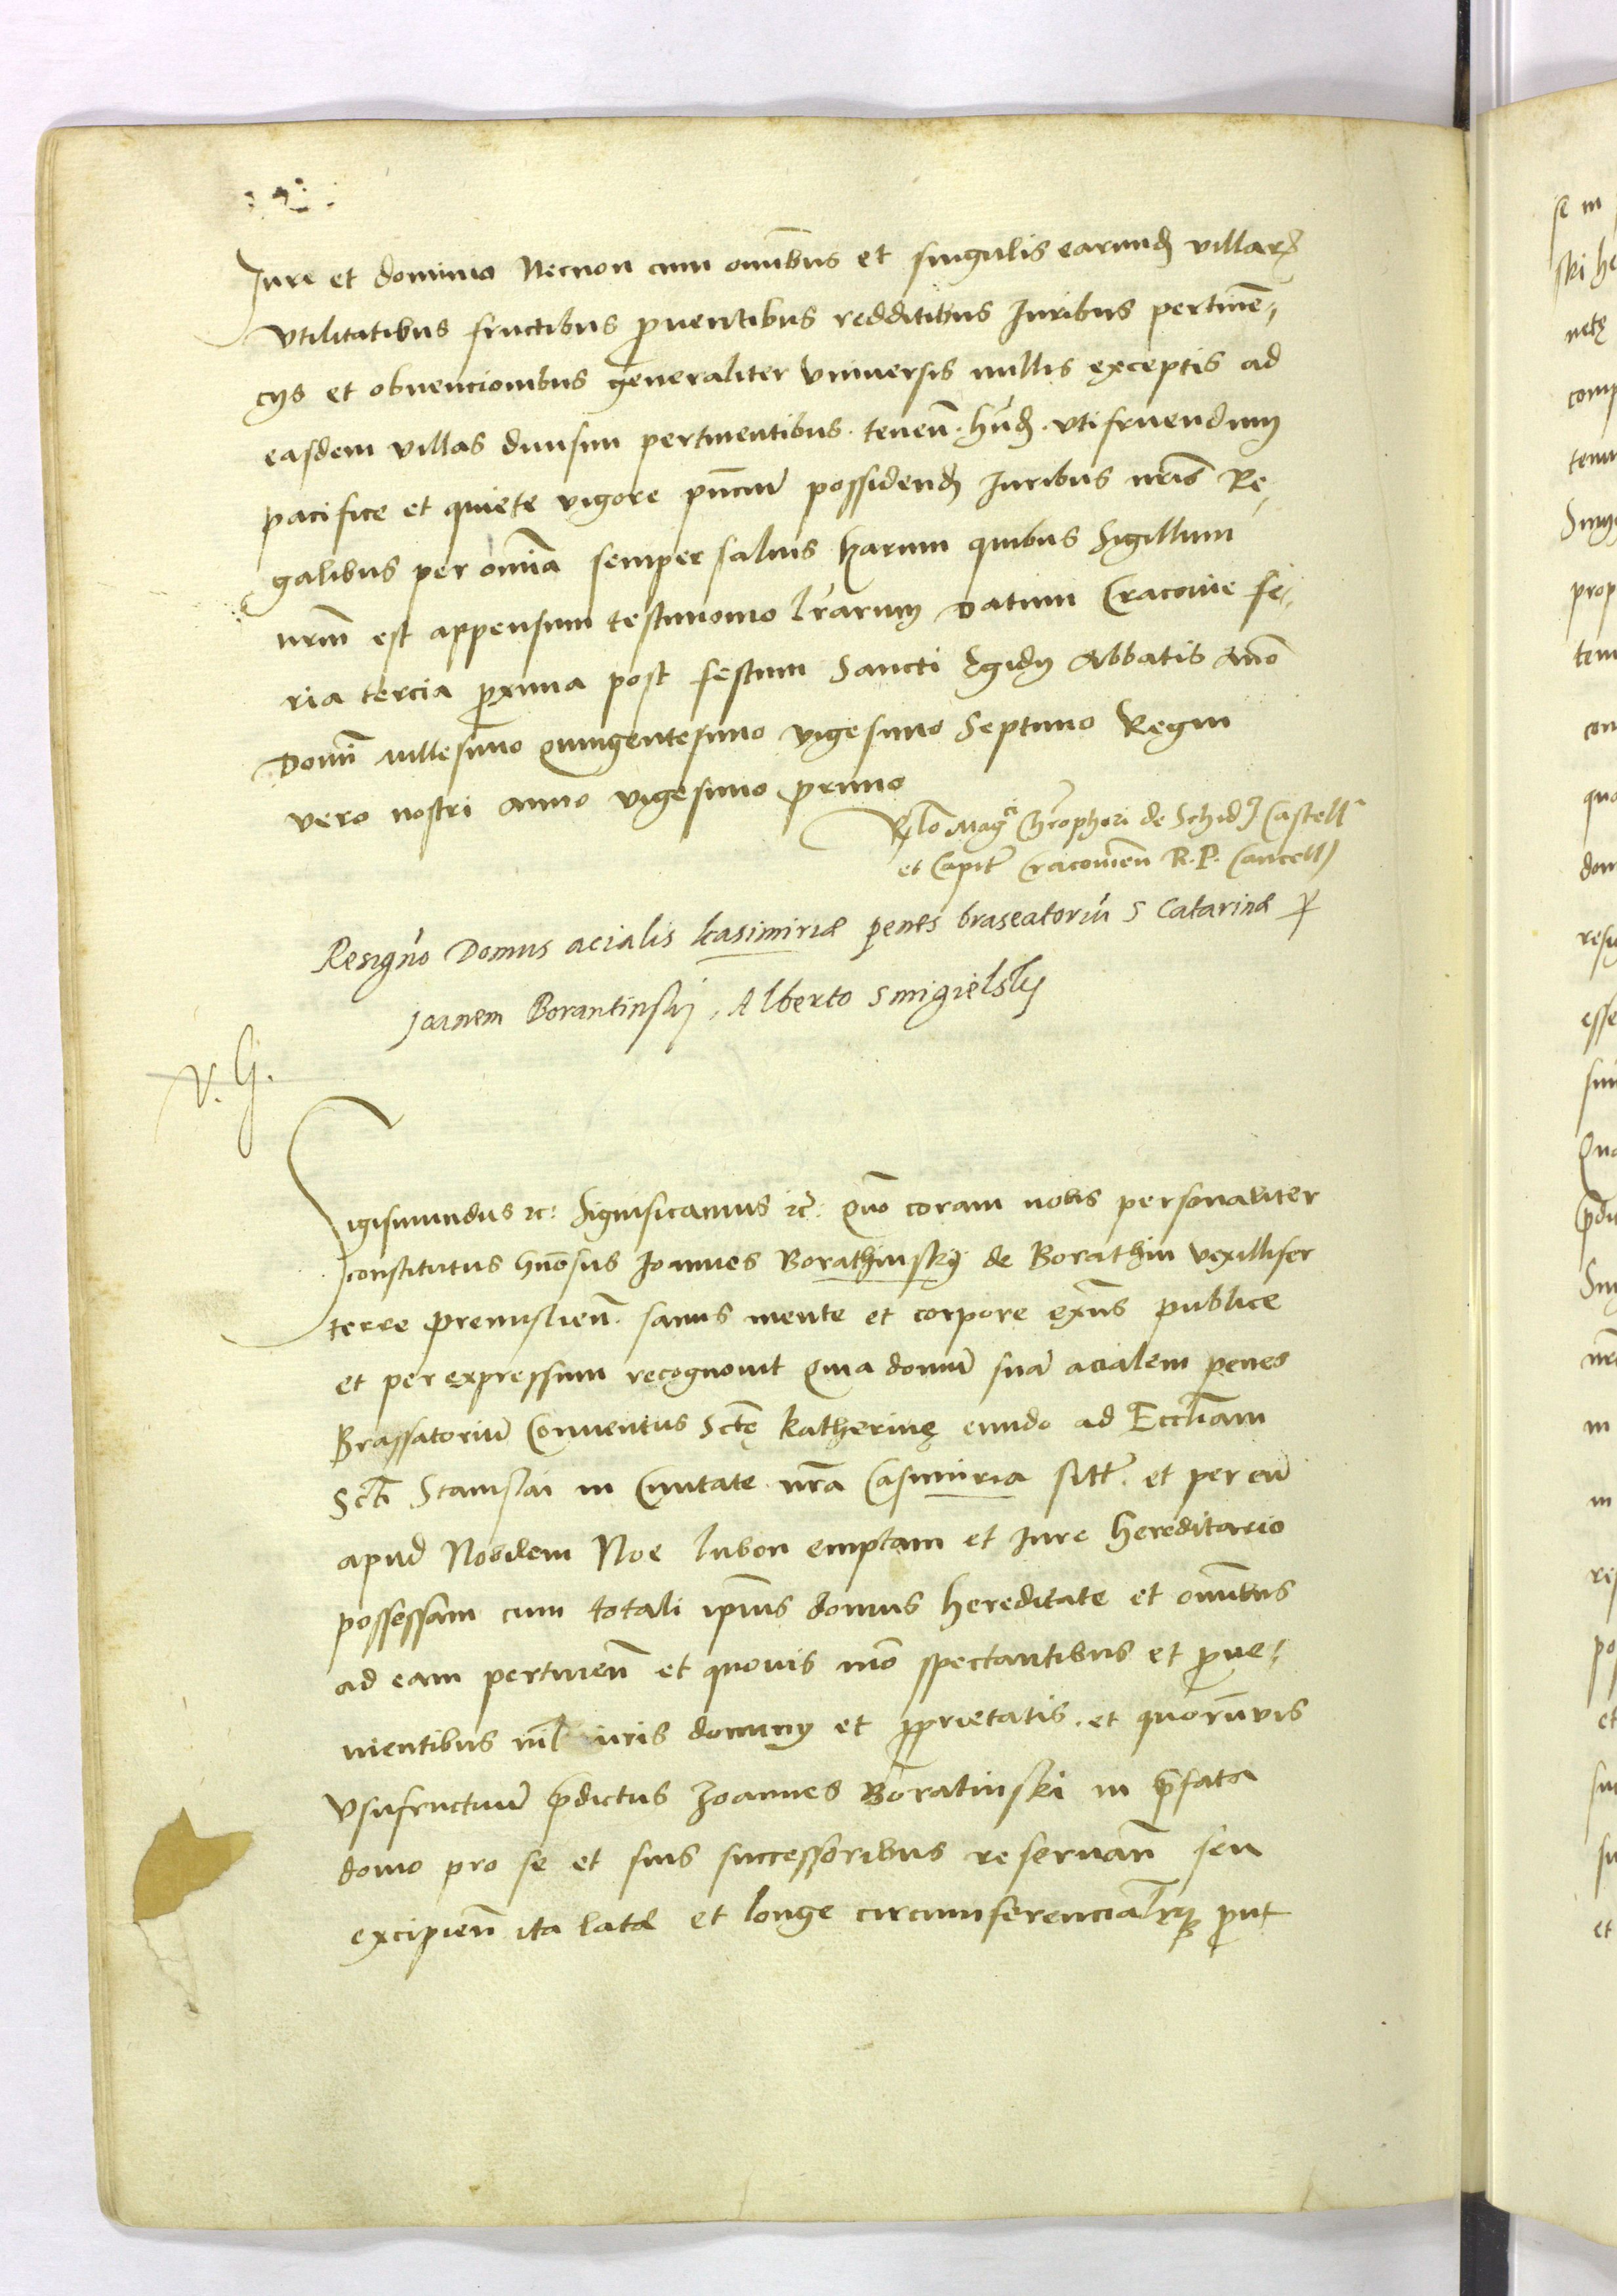 Jure et dominio Necnon cum omībus et singulis earund villar
Vtilitatibus fructibus ꝓuentibus redditibus Iuribus pertinē-
cijs et obuencionibus generaliter Vniuersis nullis exceptis ad
easdem villas diuisim pertinentibus . tenen̄ . hn̄d . vtifruendum
pacifice et quiete vigore pn̄cium possidend Iuribus nr̄is Re-
galibus per om̄ia semper saluis harum quibus Sigillum
nr̄m est appensum testimonio lr̄arum Datum Cracouie fe-
ria tercia ꝓxima post festum Sancti Egidij Abbatis Anno
Domī Millesimo Quingentesimo Vigesimo Septimo Regni
vero nostri anno vigesimo primo
Rlo Magci Chrophori de Schid Castell
et Capit Cracouien̄ R. P. Cancell
Resigno Domus acialis Kasimiriæ penes braseatoriū S Catarinæ ꝑ
Joanem Borantinski, Alberto Smigielsky
V. G.
Sigismundus ꝛc: Significamus ꝛc. Quo coram nobis personaliter
constitutus gn̄osus Ioannes Borathinsky de Borathin Vexillifer
terre Premislien̄. sanus mente et corpore exn̄s publice
et per expressum recognouit Quia domū suā acialem penes
Brassatoriū Conuentus Sctę Katherinę eundo ad Eccl̄iam
Scti Stanislai in Ciuitate nr̄a Casimiria sitt. et per eū
apud Nobilem Noe lubon emptam et Iure hereditario
possessam cum totali ip̄ius domus hereditate et omībus
ad eam pertinen̄ et quouis mō spectantibus et ꝓue-
nientibus nil iuris dominij et ꝓprietatis . et quorūuis
Vsufructuū p̄dictus Joannes Boratinski in p̄fata
domo pro se et suis successoribus reseruan̄ seu
excipien̄ ita late et longe circumferencialrqꝫ prout